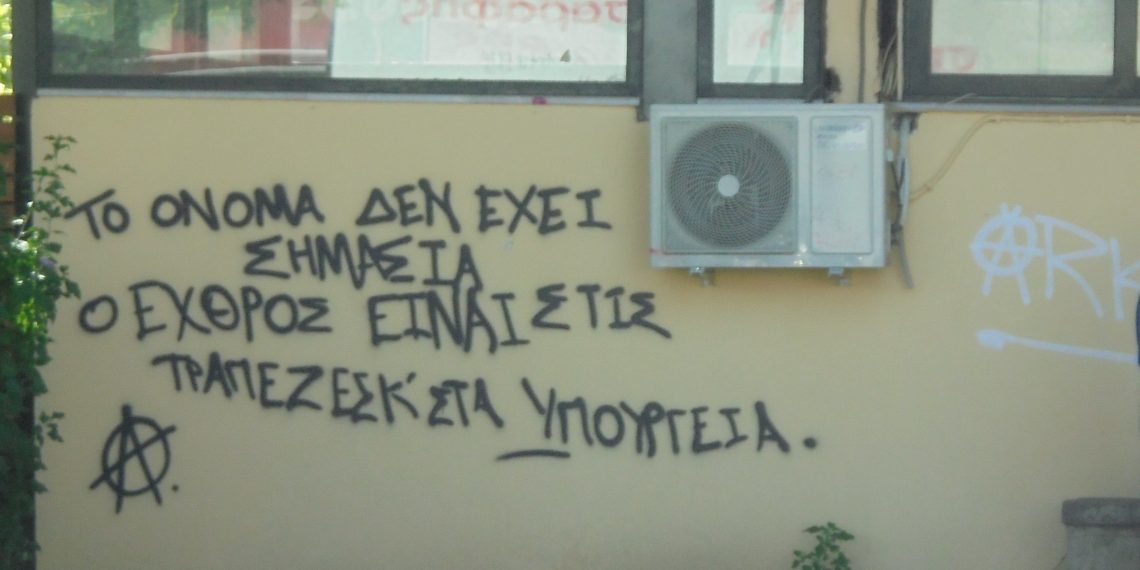 ΤΟ ΟΝΟΜΑ ΔΕΝ ΕΧΕΙ
ΣΗΜΑΣΙΑ
Ο ΕΧΘΡΟΣ ΕΙΝΑΙ ΣΤΙΣ
ΤΡΑΠΕΖΕΣ Κ' ΣΤΑ ΥΠΟΥΡΓΕΙΑ.
Α.
ARK